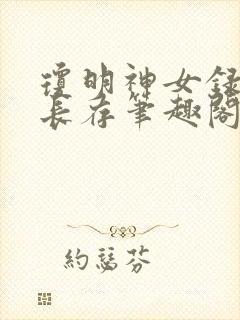 瓊明神女録
長存筆趣閣
約瑟芬